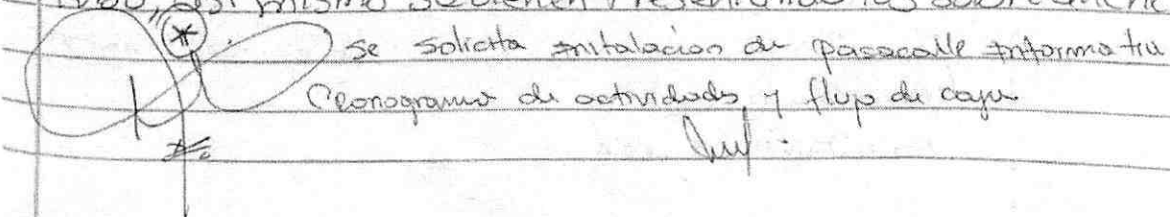 así mismo se vienen presentando los
(*) se solicita instalación de pasacalle informativ
Cronograma de actividades y flujo de caja